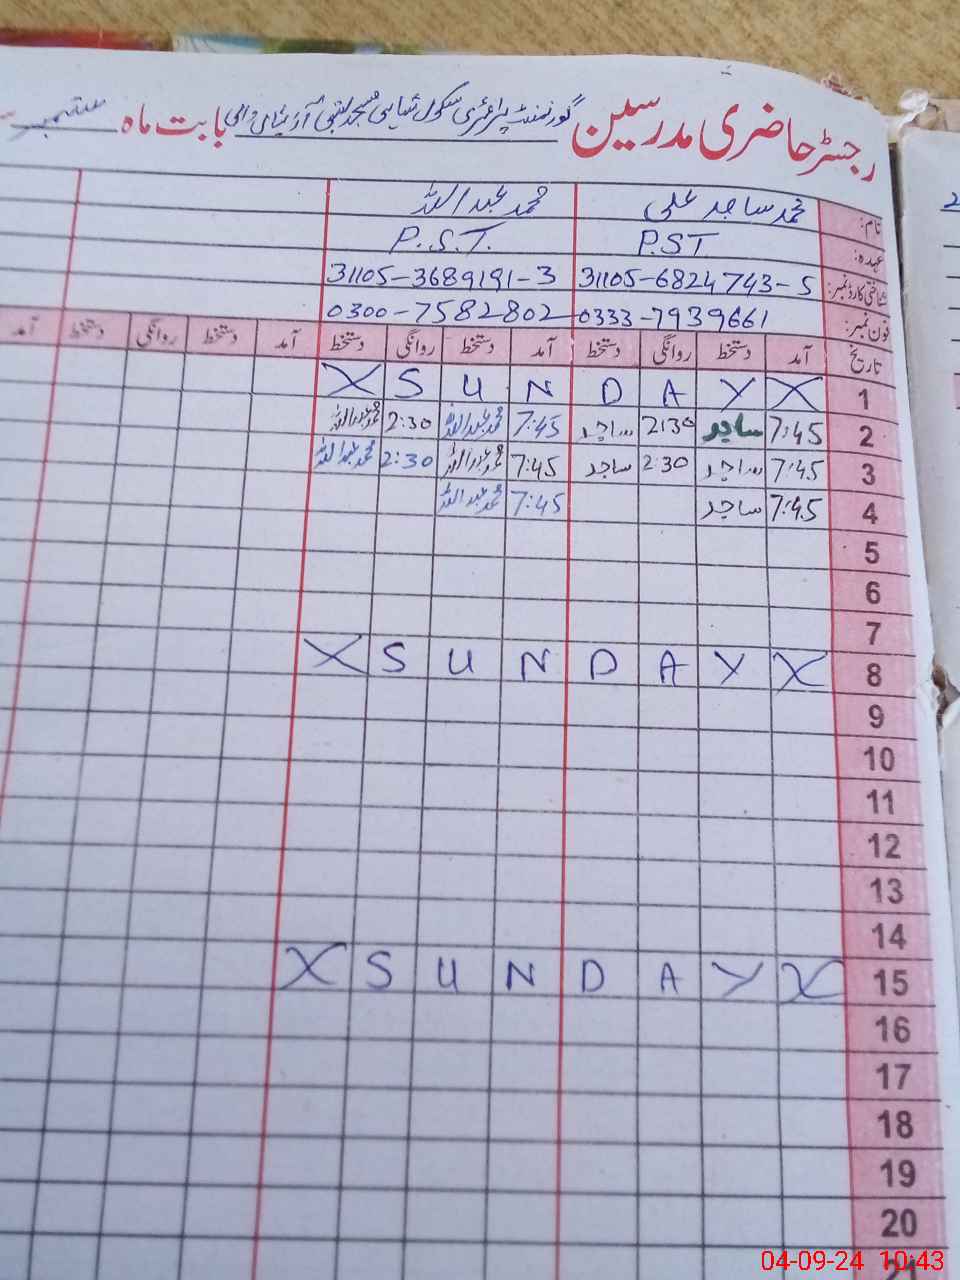 رجسٹر حاضری مدرسین گورنمنٹ پرائمری سکول شاہی مسجد بابت ماہ ستمبر
نام: محمد ساجد علی محمد عبداللہ
عہدہ: PST P.S.T.
شناختی کارڈ نمبر: 31105-6824743-5 31105-3689191-3
فون نمبر: 0333-7939661 0300-7582802
تاریخ آمد دستخط روانگی دستخط آمد دستخط روانگی دستخط آمد دستخط روانگی دستخط آمد
1 X S U N D A Y X
2 7:45 ساجد 2:30 ساجد 7:45 محمد عبداللہ 2:30 محمد عبداللہ
3 7:45 ساجد 2:30 ساجد 7:45 محمد عبداللہ 2:30 محمد عبداللہ
4 7:45 ساجد 7:45 محمد عبداللہ
5
6
7
8 X S U N D A Y X
9
10
11
12
13
14
15 X S U N D A Y X
16
17
18
19
20
21
04-09-24 10:43